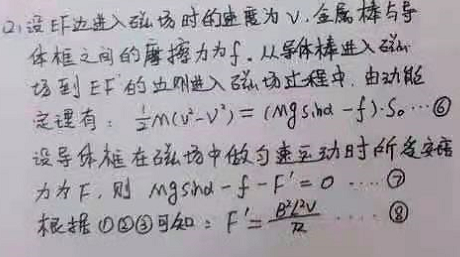 (2)设EF边进入磁场时的速度为v,金属棒与导
体框之间的摩擦力为f.从导体棒进入磁
场到EF的边刚进入磁场过程中,由动能
定理有:½m(v²-v²)=(mgsinα-f)·S₀…⑥
设导体框在磁场中做匀速运动时所受安培
力为F,则 Mgsinα-f-F'=0 ……⑦
根据①②③可知:F'=B²L²v/R ……⑧